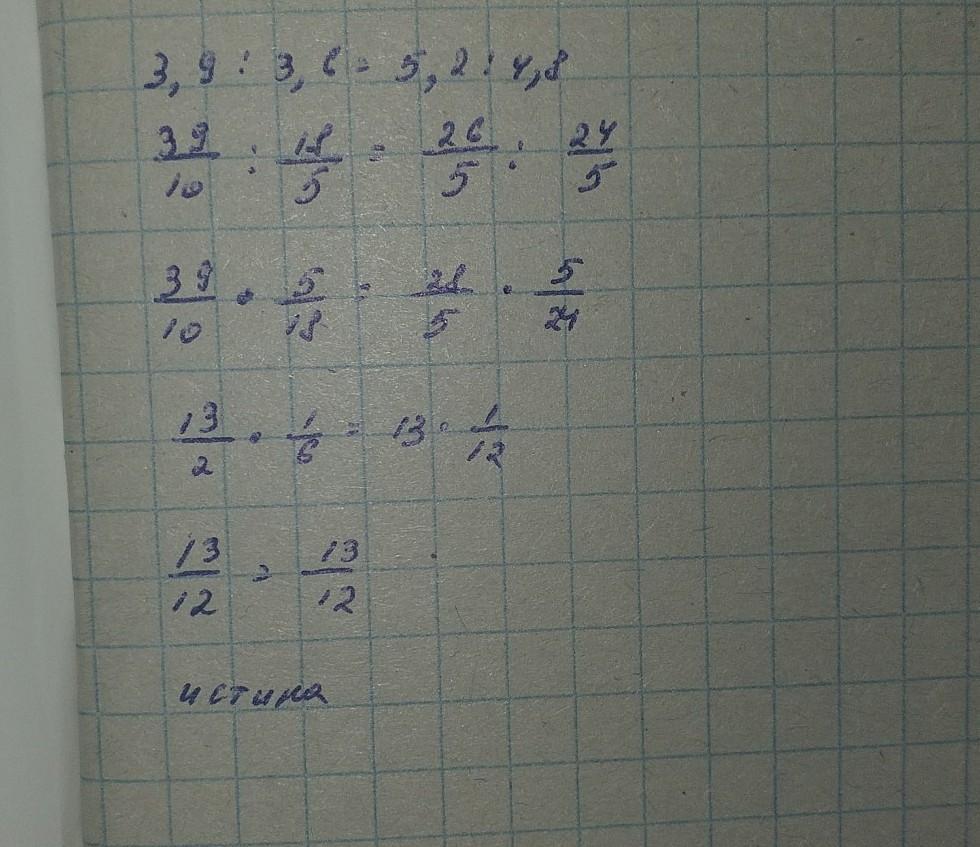 3,9 : 3,6 = 5,2 : 4,8
39/10 : 18/5 = 26/5 : 24/5
39/10 · 5/18 = 28/5 · 5/24
13/2 · 1/6 = 13 · 1/12
13/12 = 13/12
истина